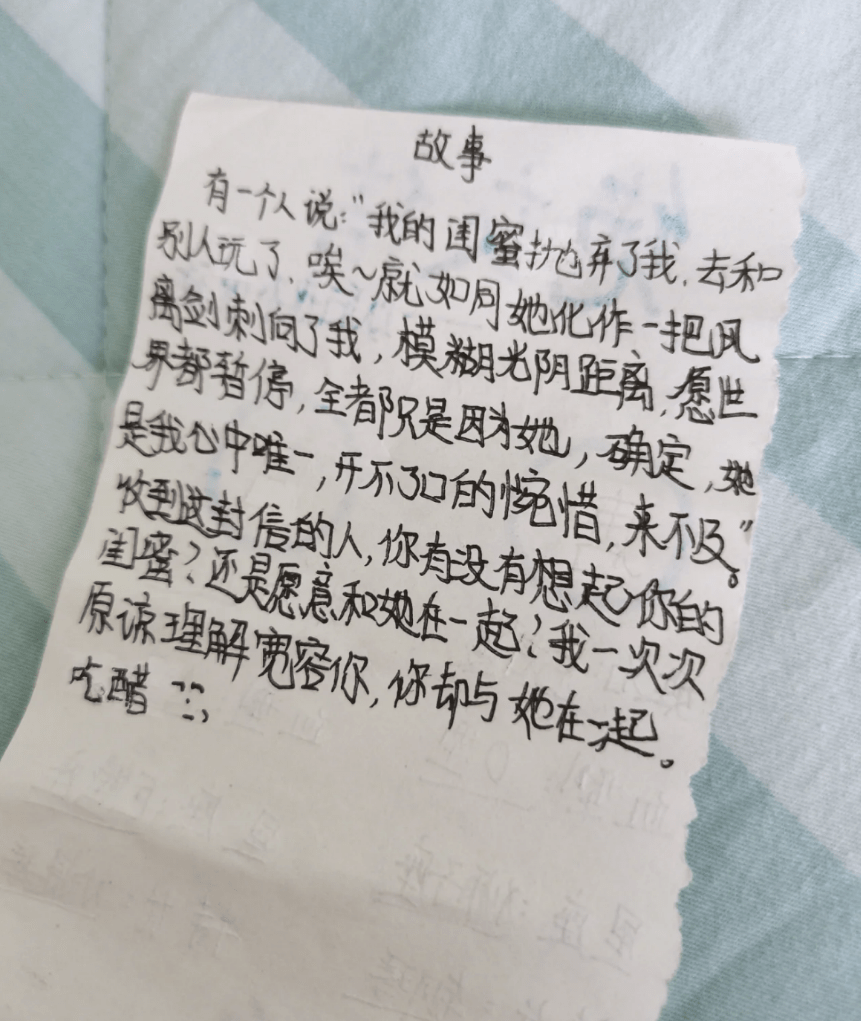 故事
有一个人说："我的闺蜜抛弃了我，去和
别人玩了，唉～就如同她化作一把风
离剑刺向了我，模糊光阴距离，愿世
界都暂停，全都只是因为她，确定，她
是我心中唯一，开不了口的惋惜，来不及。"
收到这封信的人，你有没有想起你的
闺蜜？还是愿意和她在一起？我一次次
原谅理解宽容你，你却与她在一起。
吃醋